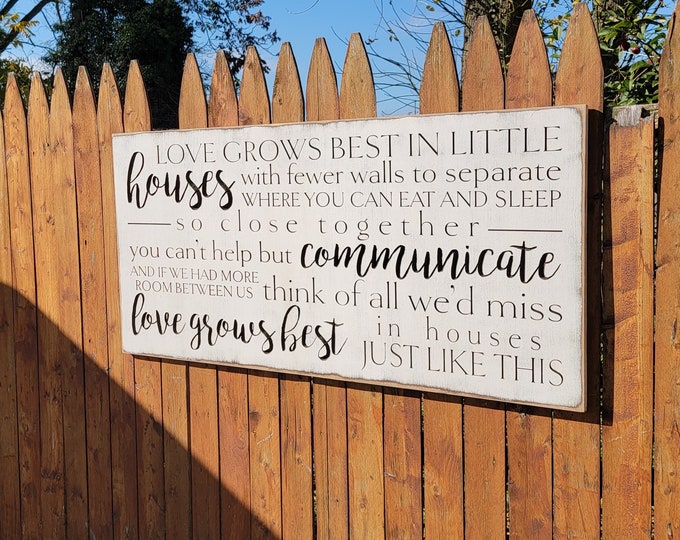 LOVE GROWS BEST IN LITTLE
houses with fewer walls to separate
WHERE YOU CAN EAT AND SLEEP
so close together
you can't help but communicate
AND IF WE HAD MORE
ROOM BETWEEN US think of all we'd miss
love grows best in houses
JUST LIKE THIS